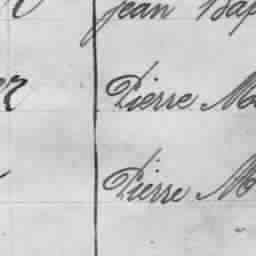 Jean Bap
Pierre M
Pierre M